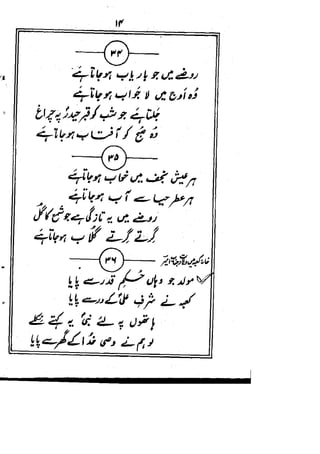 ۱۴
۳۴
روضے میں جو باریاب ہوجاتا ہے
وہ اوج میں لاجواب ہوجاتا ہے
جلتا ہے جو شب کو قبرِ حیدرؑ پہ چراغ
وہ صبح کو آفتاب ہوجاتا ہے
۳۵
ہر عیش نجف میں خواب ہوجاتا ہے
ہر عطر حیا سے آب ہوجاتا ہے
روضے میں یہ تازگی ہے جو شمع کا گل
گرتے گرتے گلاب ہوجاتا ہے
۳۶
خانہ کعبہ میں
مولد جو وہاں حکمِ قدر سے پایا
کعبہ نے شرف علیؑ کے در سے پایا
ہاتھوں پہ لئے نبیؐ یہ کہتے نکلے
لو ہم نے وصی خدا کے گھر سے پایا